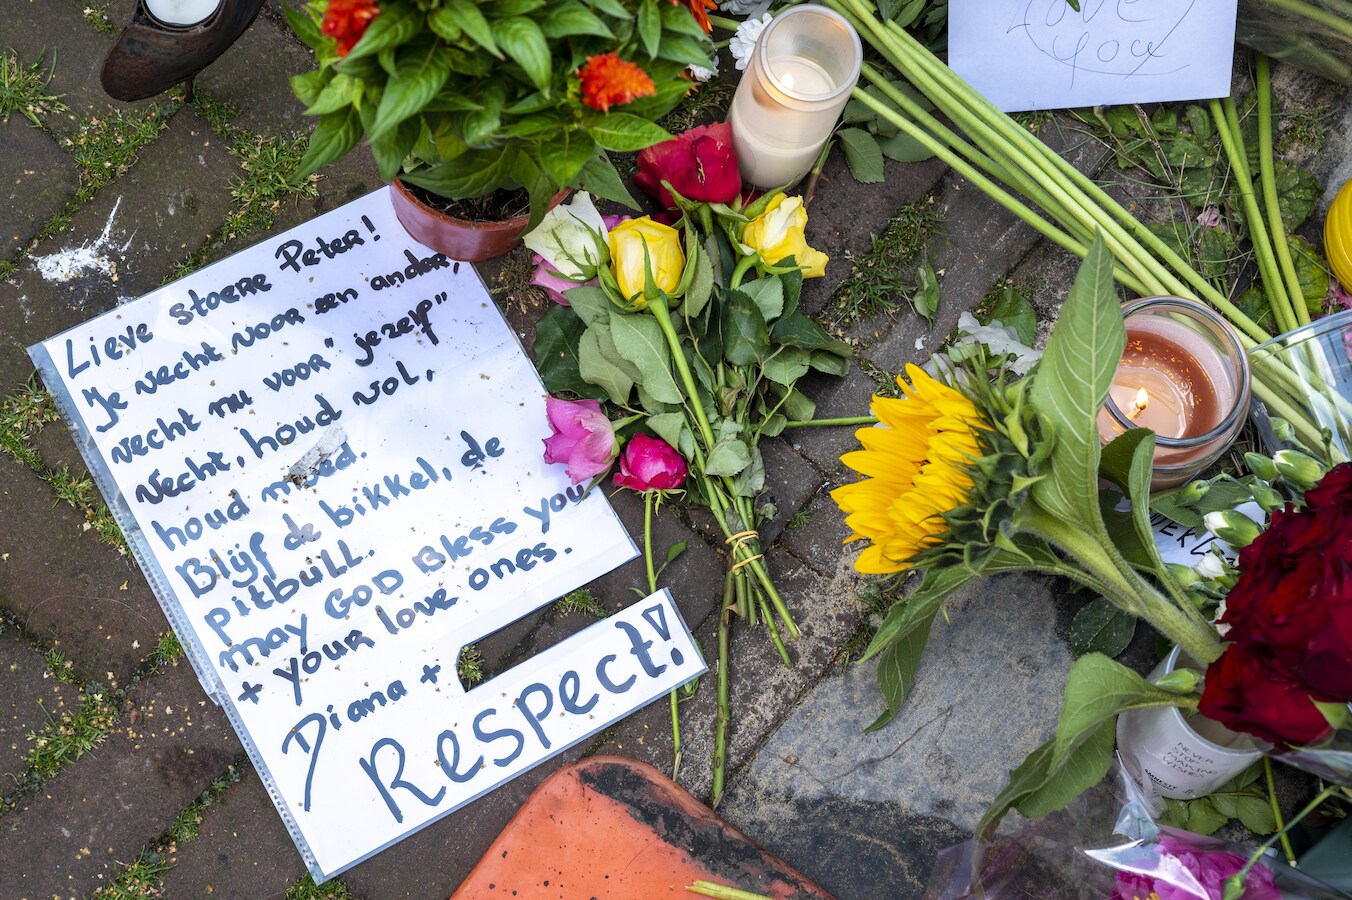 Love
you
Lieve stoere Peter!
Je vecht voor een ander,
vecht nu voor "jezelf"
Vecht, houd vol,
houd moed.
Blijf de bikkel, de
pitbull.
may GOD Bless you
+ your love ones.
Diana +
Respect!
NEVER
STOP
MAKING
WISHES